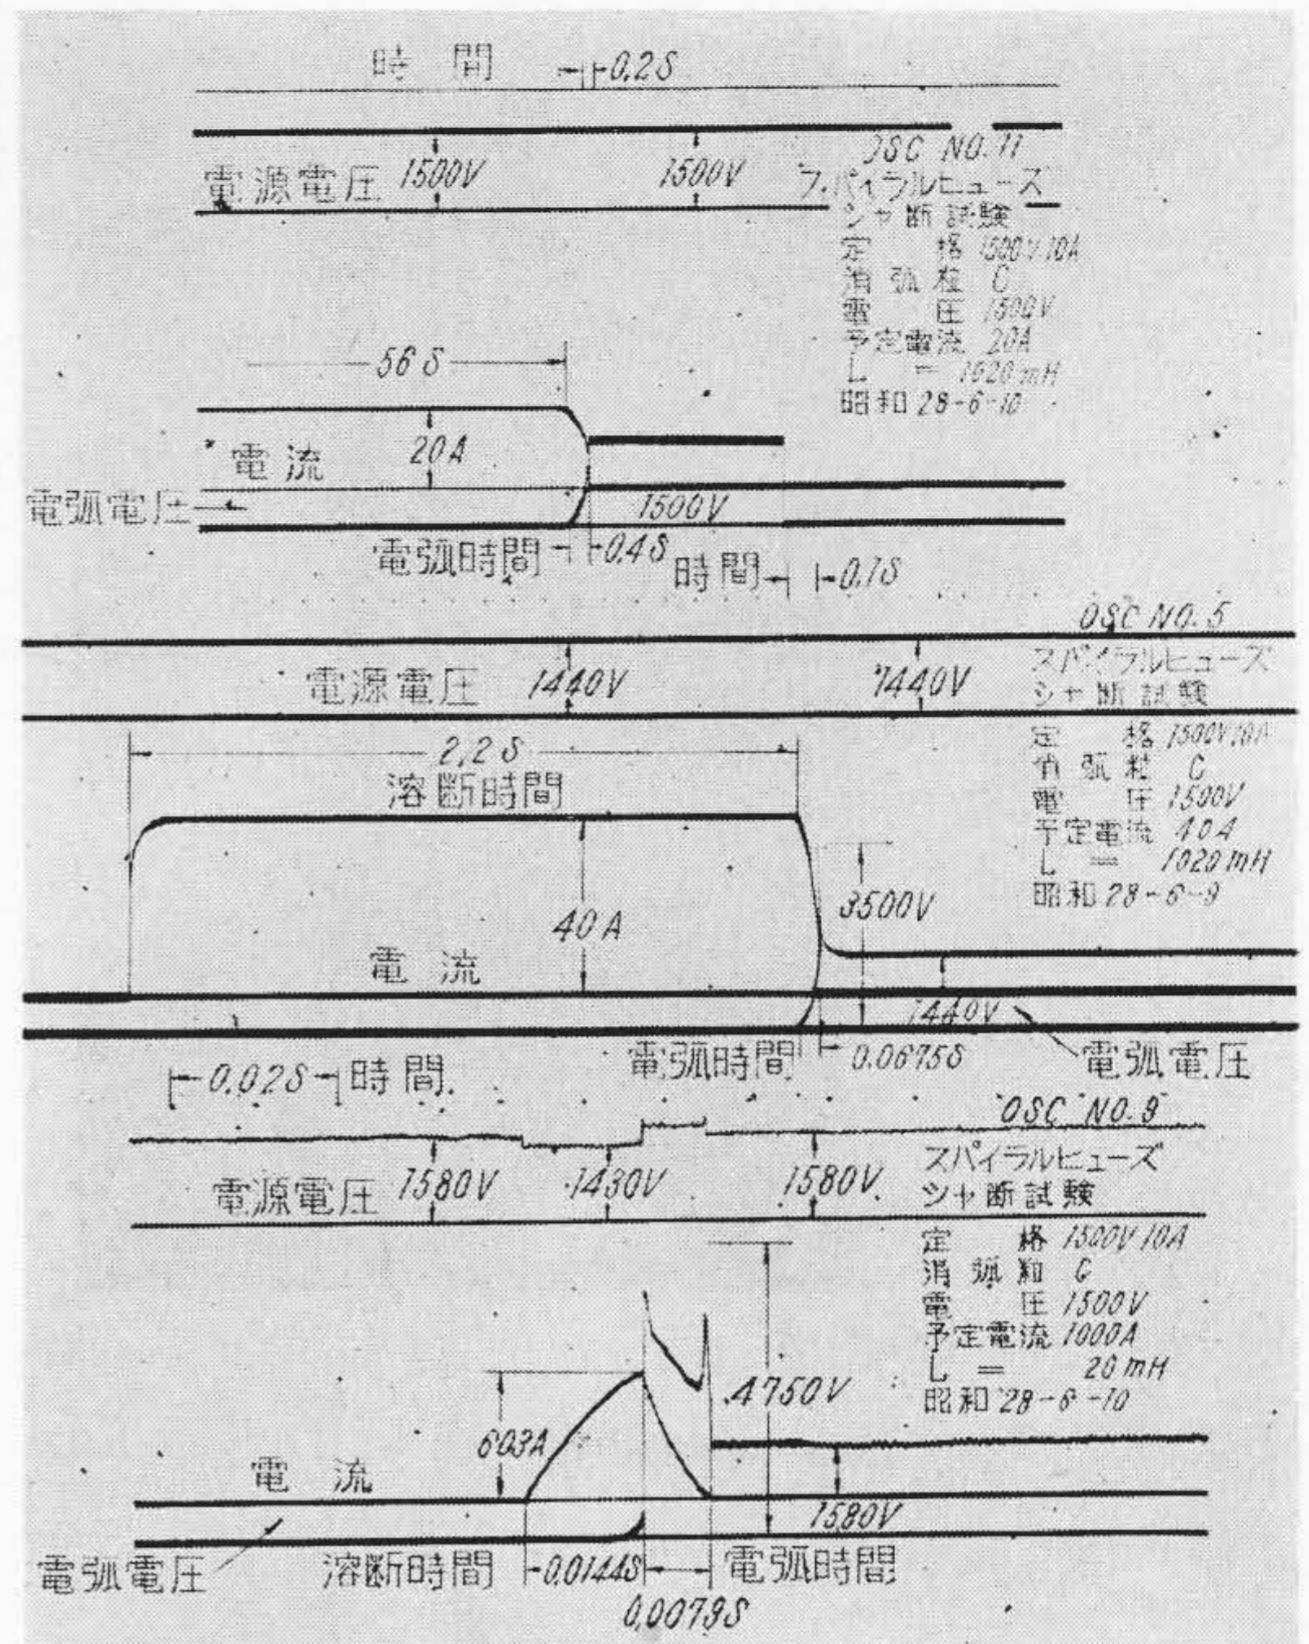 時間 0.2S
電源電圧 1500V 1500V
OSC NO.11
スパイラルヒューズ
シャ断試験
定格 1500V 10A
消弧粒 C
電圧 1500V
予定電流 20A
L = 1020mH
昭和28-6-10
56S
電流 20A
電弧電圧 1500V
電弧時間 0.4S
時間 0.1S
OSC NO.5
電源電圧 1440V 1440V
スパイラルヒューズ
シャ断試験
定格 1500V10A
消弧粒 C
電圧 1500V
予定電流 40A
L = 1020mH
昭和28-6-9
2.2S
溶断時間
40A 3500V
電流
1440V
電弧時間 0.0675S 電弧電圧
0.02S 時間
OSC NO.9
電源電圧 1580V 1430V 1580V
スパイラルヒューズ
シャ断試験
定格 1500V 10A
消弧粒 C
電圧 1500V
予定電流 1000A
L = 20mH
昭和28-6-10
603A 4750V
電流
1580V
電弧電圧 溶断時間 0.0144S 電弧時間
0.0079S